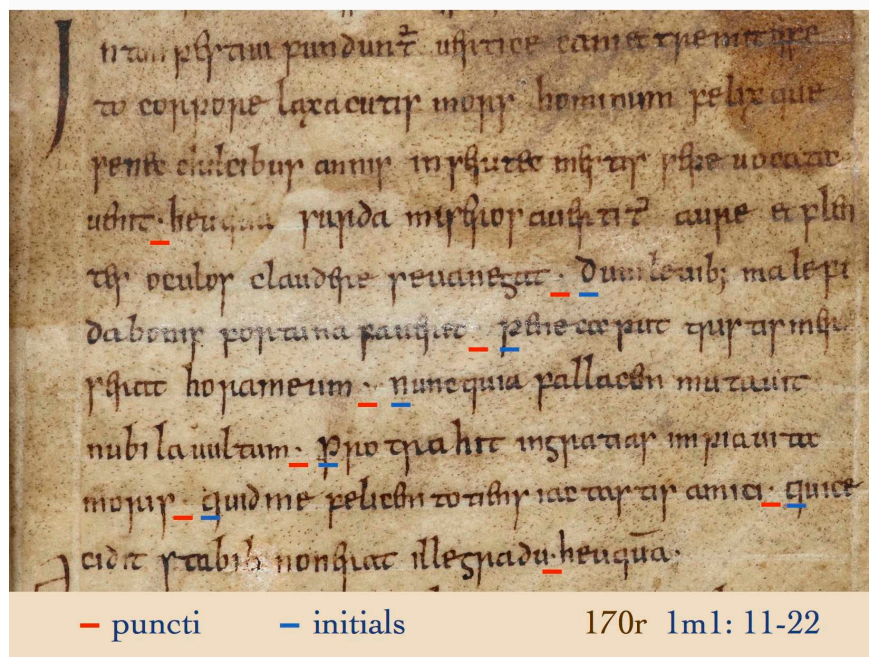 In tempestiui fundunt̃ uertice cani et tremit effe
to corpore laxa cutis mors hominum felix que
se nec dulcibus annis mestis sepe uocata
uenit · heu qua surda miseros auertit̃ aure et flen
tes oculos claudere seua negat · dum leuib; male fi
da bonis fortuna faueret · pene caput tristis mer
serat hora meum · nunc quia fallacem mutauit
nubila uultum · protrahit ingratas impia uita
moras · quid me felicem totiens iactastis amici · qui ce
cidit stabili non erat ille gradu · heu quā ·
puncti initials 170r 1m1: 11-22